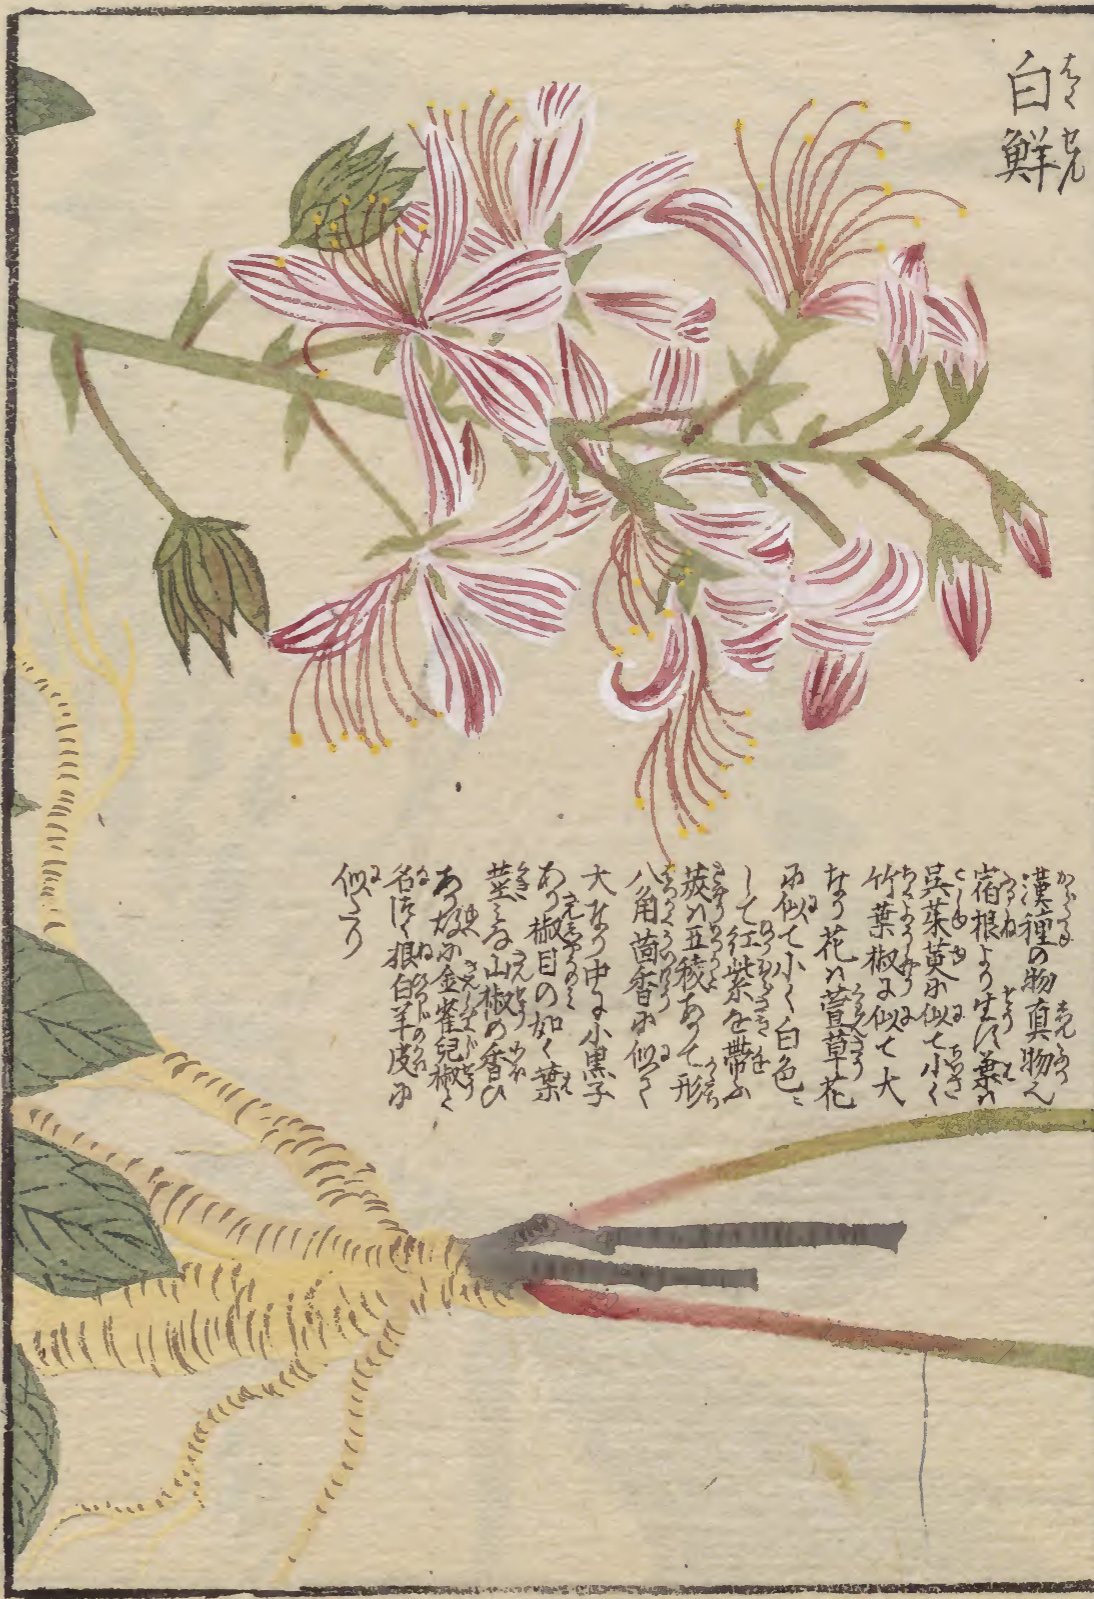 白鮮
はくせん
漢種の物真物ん
宿根より生ス葉ハ
呉茱萸に似て小く
竹葉椒に似て大
なり花ハ萱草花
に似て小く白色ニ
して紅紫を帯ふ
莢ハ五稜ありて形
八角茴香に似て
大なり中に小黒子
あり椒目の如く葉
茎ともに山椒の香ひ
あり故に金雀児椒と
名つく根白羊皮に
似たり